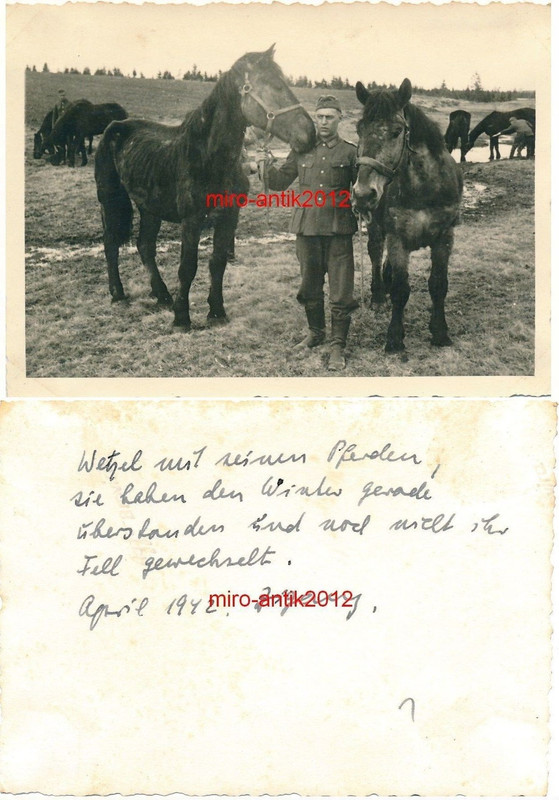 miro-antik2012
Wetzel mit seinen Pferden,
sie haben den Winter gerade
überstanden und noch nicht ihr
Fell gewechselt.
April 1942.
miro-antik2012